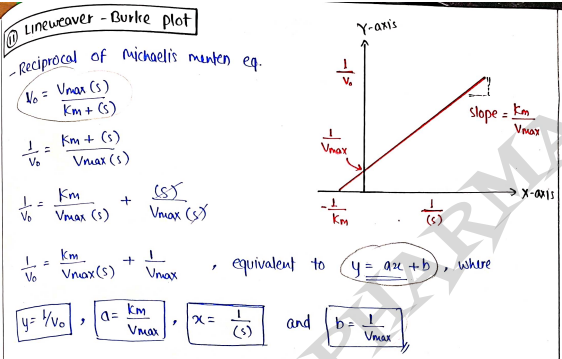 (11) Lineweaver - Burke plot
- Reciprocal of Michaelis menten eq.
V₀ = Vmax (s) / Km + (s)
1/V₀ = Km + (s) / Vmax (s)
1/V₀ = Km / Vmax (s) + (s) / Vmax (s)
1/V₀ = Km / Vmax (s) + 1 / Vmax , equivalent to y = ax + b , where
y = 1/V₀ , a = Km / Vmax , x = 1 / (s) and b = 1 / Vmax //
Y-axis
1/V₀
slope = Km / Vmax
1 / Vmax
X-axis
-1 / Km
1 / (s)
PHARMA